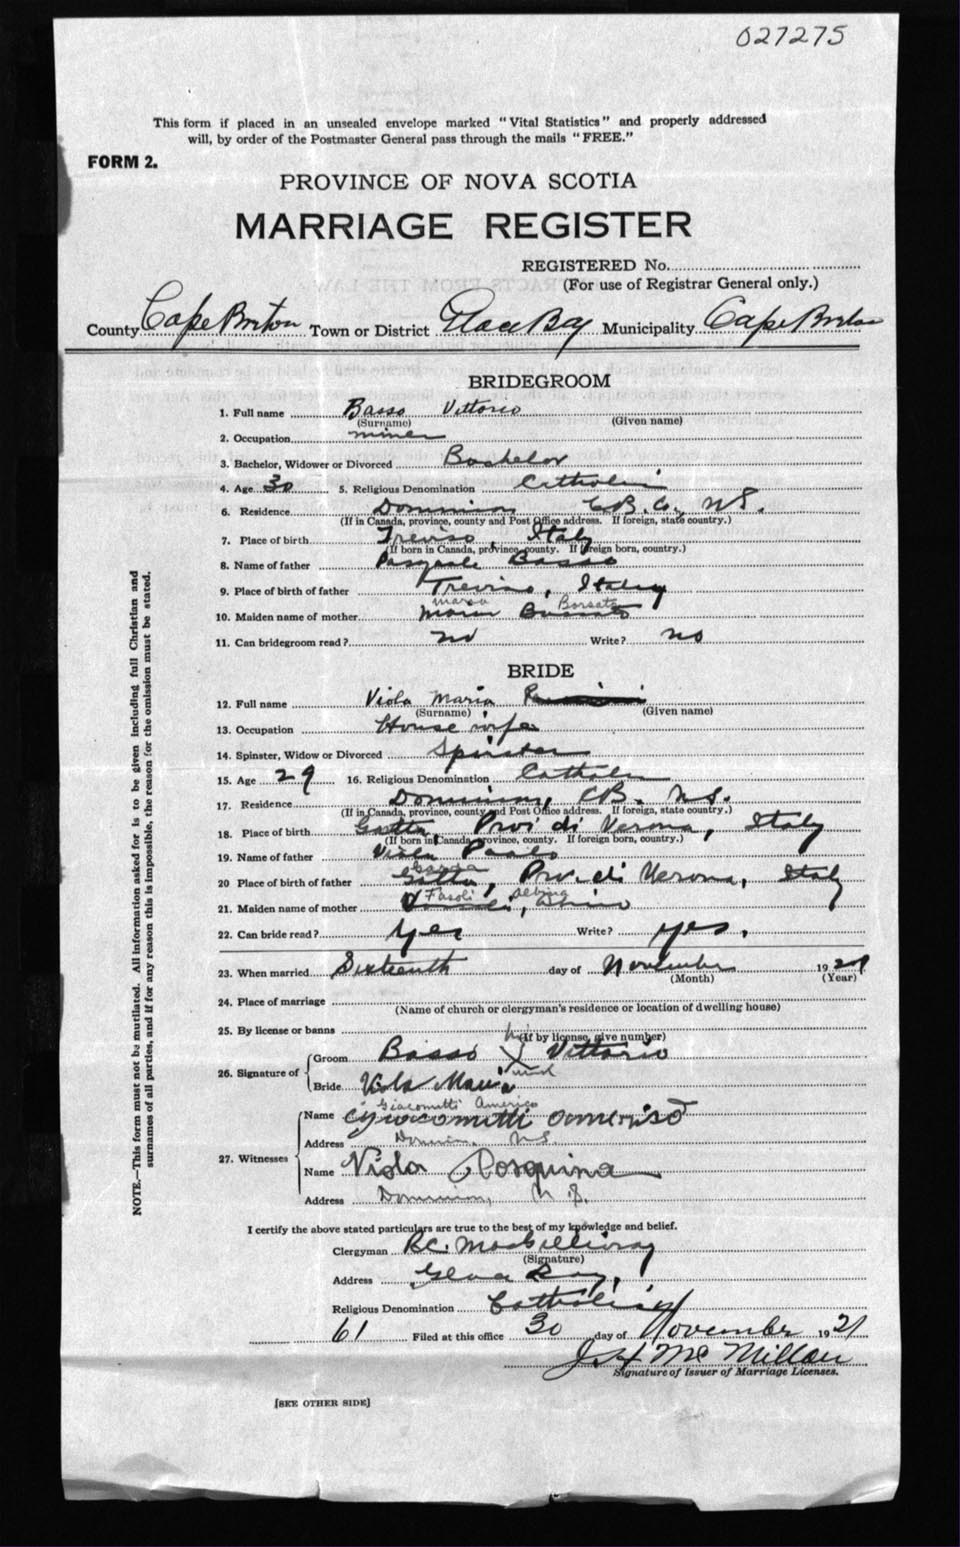 027275
This form if placed in an unsealed envelope marked "Vital Statistics" and properly addressed
will, by order of the Postmaster General pass through the mails "FREE."
FORM 2.
PROVINCE OF NOVA SCOTIA
MARRIAGE REGISTER
REGISTERED No.
(For use of Registrar General only.)
County Cape Breton Town or District Glace Bay Municipality Cape Breton
BRIDEGROOM
1. Full name Basso Vittorio
(Surname) (Given name)
2. Occupation miner
3. Bachelor, Widower or Divorced Bachelor
4. Age 30 5. Religious Denomination Catholic
6. Residence Dominion C.B. Co, N.S.
(If in Canada, province, county and Post Office address. If foreign, state country.)
7. Place of birth Treviso, Italy
(If born in Canada, province, county. If foreign born, country.)
8. Name of father Pasquale Basso
9. Place of birth of father Treviso, Italy
Maria Borsato
10. Maiden name of mother Maria
11. Can bridegroom read? no Write? no
BRIDE
12. Full name Viola Maria
(Surname) (Given name)
13. Occupation House wife
14. Spinster, Widow or Divorced Spinster
15. Age 29 16. Religious Denomination Catholic
17. Residence Dominion, C.B. N.S.
(If in Canada, province, county and Post Office address. If foreign, state country.)
18. Place of birth Prov. di Verona, Italy
(If born in Canada province, county. If foreign born, country.)
19. Name of father Viola Paolo
20 Place of birth of father Prov. di Verona, Italy
Fasoli Albina
21. Maiden name of mother
22. Can bride read? Yes Write? yes.
23. When married Sixteenth day of November 1921
(Month) (Year)
24. Place of marriage
(Name of church or clergyman's residence or location of dwelling house)
25. By license or banns
(If by license, give number)
his
26. Signature of Groom Basso X Vittorio
mark
Bride Viola Maria
Giacometti Americo
27. Witnesses
Name Gyiacometti Americo
Address Dominion, N.S.
Name Viola Pasquina
Address Dominion, N.S.
I certify the above stated particulars are true to the best of my knowledge and belief.
Clergyman R.C. MacGillivray
(Signature)
Address Glace Bay,
Religious Denomination Catholic
61 Filed at this office 30 day of November 1921
J. H. McMillan
Signature of Issuer of Marriage Licenses.
[SEE OTHER SIDE]
NOTE.—This form must not be mutilated. All information asked for is to be given including full Christian and
surnames of all parties, and if for any reason this is impossible, the reason for the omission must be stated.